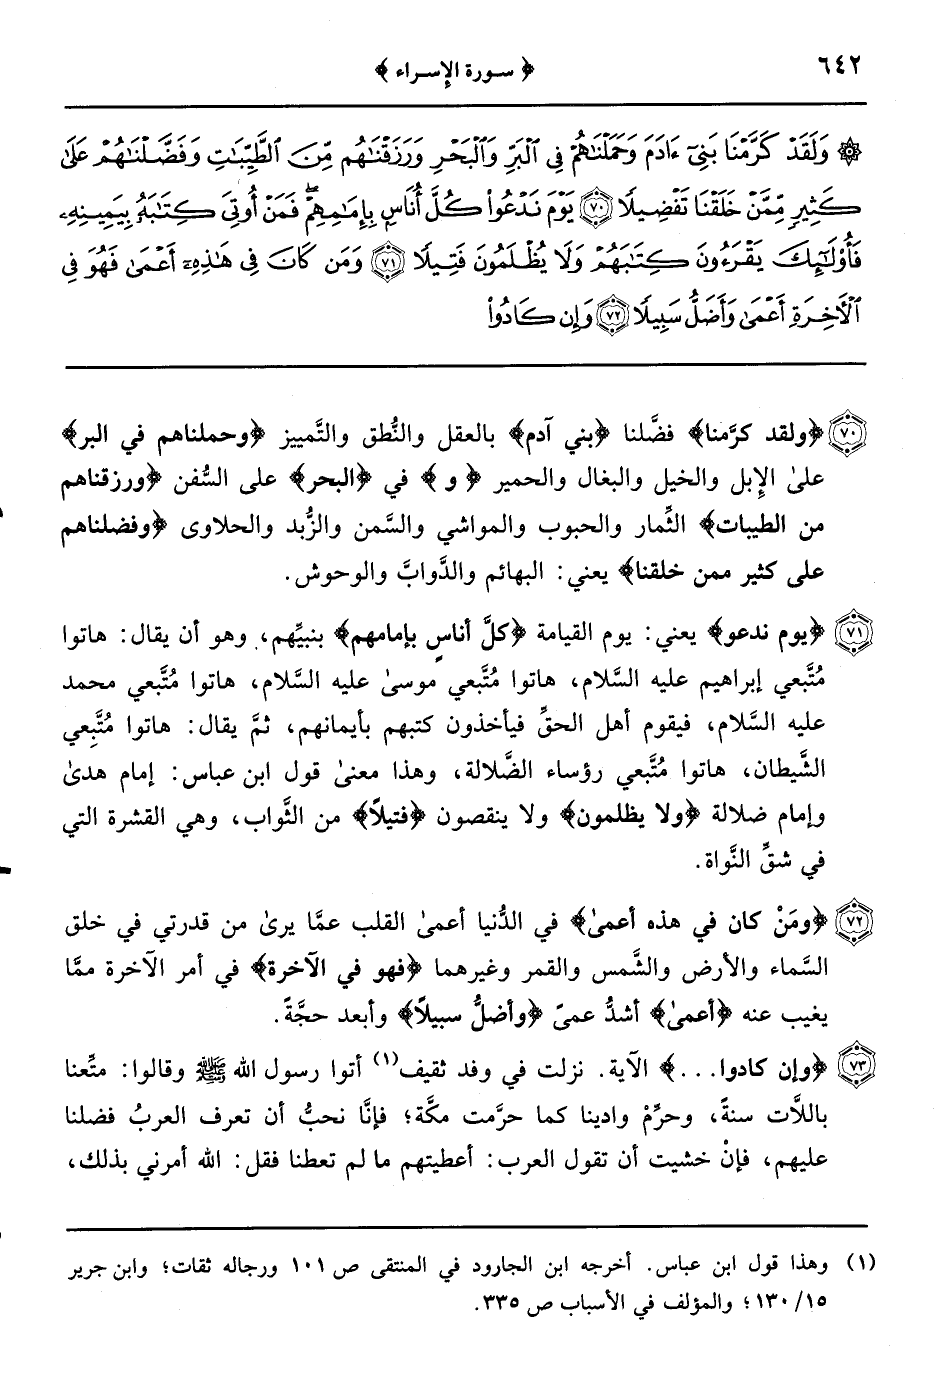 ٦٤٢
﴿ سورة الإسراء ﴾
۞ وَلَقَدْ كَرَّمْنَا بَنِىٓ ءَادَمَ وَحَمَلْنَـٰهُمْ فِى ٱلْبَرِّ وَٱلْبَحْرِ وَرَزَقْنَـٰهُم مِّنَ ٱلطَّيِّبَـٰتِ وَفَضَّلْنَـٰهُمْ عَلَىٰ
كَثِيرٍ مِّمَّنْ خَلَقْنَا تَفْضِيلًا ﴿٧٠﴾ يَوْمَ نَدْعُوا۟ كُلَّ أُنَاسٍۭ بِإِمَـٰمِهِمْ ۖ فَمَنْ أُوتِىَ كِتَـٰبَهُۥ بِيَمِينِهِۦ
فَأُو۟لَـٰٓئِكَ يَقْرَءُونَ كِتَـٰبَهُمْ وَلَا يُظْلَمُونَ فَتِيلًا ﴿٧١﴾ وَمَن كَانَ فِى هَـٰذِهِۦٓ أَعْمَىٰ فَهُوَ فِى
ٱلْـَٔاخِرَةِ أَعْمَىٰ وَأَضَلُّ سَبِيلًا ﴿٧٢﴾ وَإِن كَادُوا۟
﴿٧٠﴾ ﴿ولقد كرَّمنا﴾ فضَّلنا ﴿بني آدم﴾ بالعقل والنُّطق والتَّمييز ﴿وحملناهم في البر﴾
علىٰ الإِبل والخيل والبغال والحمير ﴿ و ﴾ في ﴿البحر﴾ على السُّفن ﴿ورزقناهم
من الطيبات﴾ الثِّمار والحبوب والمواشي والسَّمن والزُّبد والحلاوى ﴿وفضلناهم
على كثير ممن خلقنا﴾ يعني: البهائم والدَّوابَّ والوحوش.
﴿٧١﴾ ﴿يوم ندعو﴾ يعني: يوم القيامة ﴿كلَّ أناسٍ بإمامهم﴾ بنبيِّهم، وهو أن يقال: هاتوا
مُتَّبعي إبراهيم عليه السَّلام، هاتوا مُتَّبعي موسىٰ عليه السَّلام، هاتوا مُتَّبعي محمد
عليه السَّلام، فيقوم أهل الحقِّ فيأخذون كتبهم بأيمانهم، ثمَّ يقال: هاتوا مُتَّبِعي
الشَّيطان، هاتوا مُتَّبعي رؤساء الضَّلالة، وهذا معنىٰ قول ابن عباس: إمام هدىٰ
وإمام ضلالة ﴿ولا يظلمون﴾ ولا ينقصون ﴿فتيلاً﴾ من الثَّواب، وهي القشرة التي
في شقِّ النَّواة.
﴿٧٢﴾ ﴿ومَنْ كان في هذه أعمىٰ﴾ في الدُّنيا أعمىٰ القلب عمَّا يرىٰ من قدرتي في خلق
السَّماء والأرض والشَّمس والقمر وغيرهما ﴿فهو في الآخرة﴾ في أمر الآخرة ممَّا
يغيب عنه ﴿أعمىٰ﴾ أشدُّ عمىً ﴿وأضلُّ سبيلاً﴾ وأبعد حجَّةً.
﴿٧٣﴾ ﴿وإن كادوا. . .﴾ الآية. نزلت في وفد ثقيف(١) أتوا رسول الله ﷺ وقالوا: متِّعنا
باللَّات سنةً، وحرِّمْ وادينا كما حرَّمت مكَّة؛ فإنَّا نحبُّ أن تعرف العربُ فضلنا
عليهم، فإنْ خشيت أن تقول العرب: أعطيتهم ما لم تعطنا فقل: الله أمرني بذلك،
(١) وهذا قول ابن عباس. أخرجه ابن الجارود في المنتقى ص ١٠١ ورجاله ثقات؛ وابن جرير
١٥/ ١٣٠؛ والمؤلف في الأسباب ص ٣٣٥.